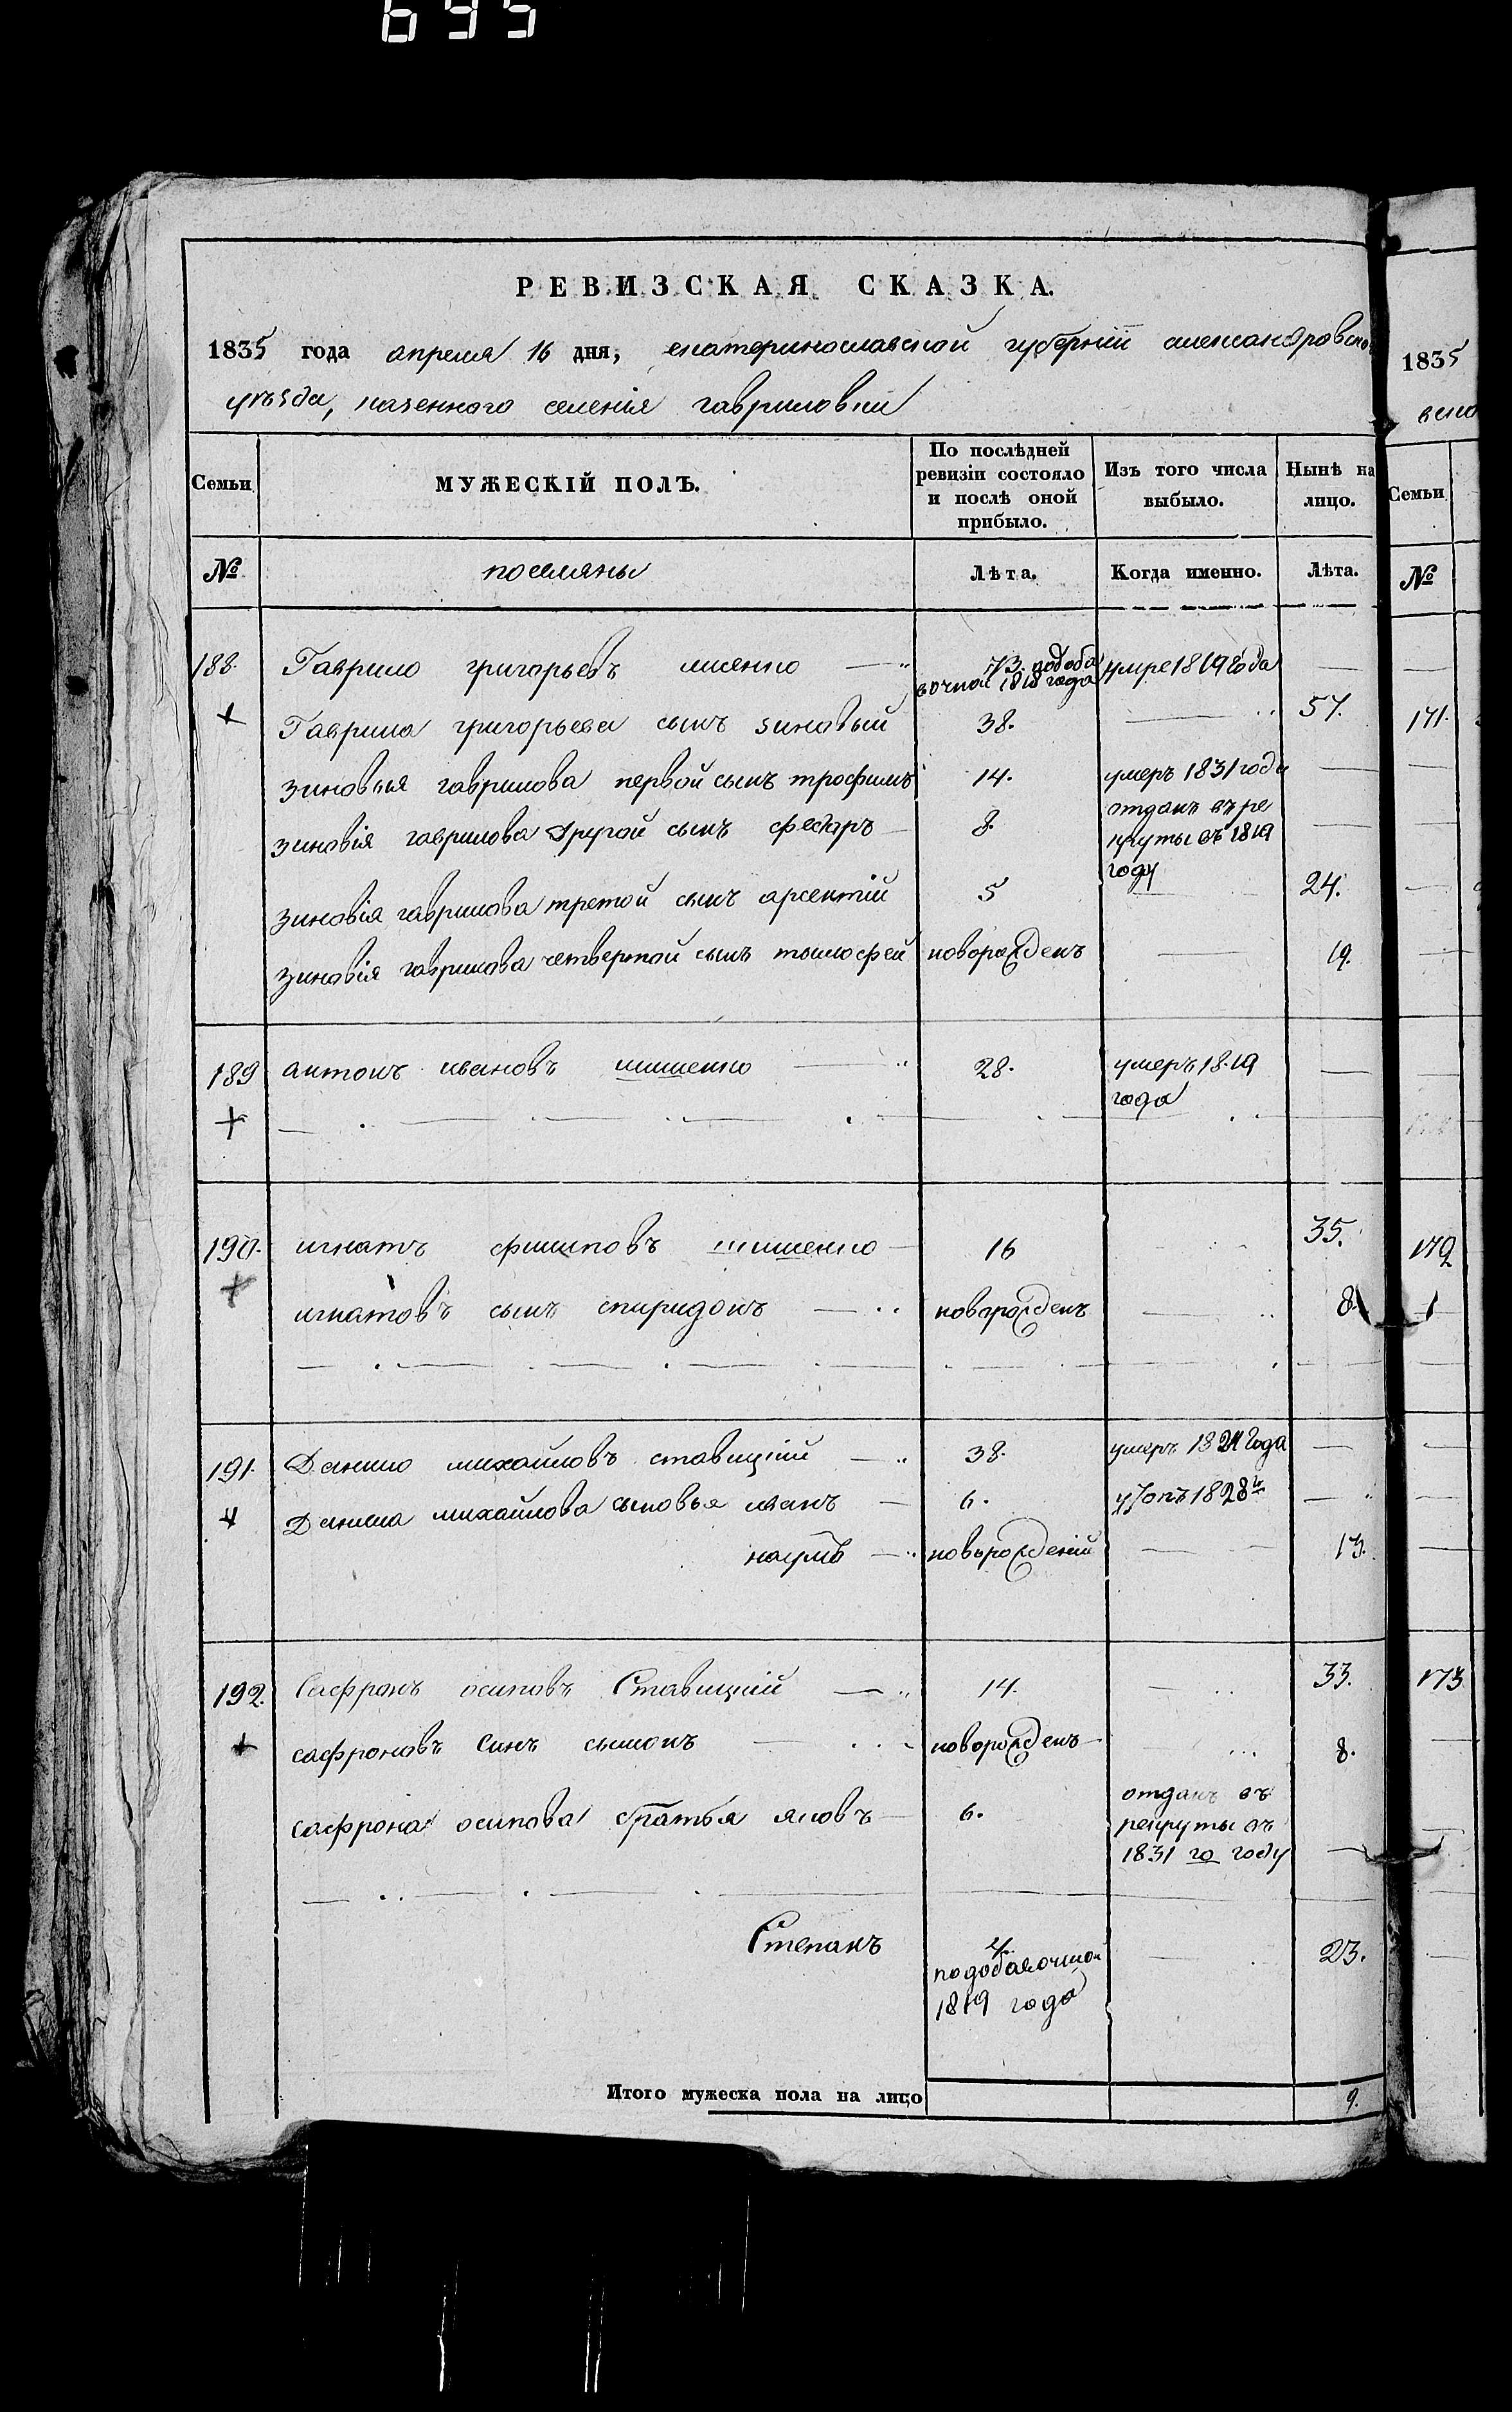 695
РЕВИЗСКАЯ СКАЗКА.
1835 года апреля 16 дня, екатеринославской губернiи александровско
уѣзда, казенного селенiя гавриловки
Семьи
МУЖЕСКIЙ ПОЛЪ.
По послѣдней ревизiи состояло и послѣ оной прибыло.
Изъ того числа выбыло.
Нынѣ на лицо.
№ поселяны Лѣта. Когда именно. Лѣта.
188. Гаврило григорьевъ 73. подоба вочной 1818 года умре 1819 года
Гаврила григорьева сынъ зиновый 38. 57.
зиновия гаврилова первой сынъ трофимъ 14. умеръ 1831 года
зиновiя гаврилова другой сынъ федаръ 8. отданъ въ ре круты въ 1819 году
зиновiя гаврилова третой сынъ арсентiй 5 24.
зиновiя гаврилова четвертой сынъ тымофей новорожденъ 19.
189 антонъ ивановъ шишенко 28. умеръ 18.19 года
190. игнатъ филиповъ шишенко 16 35.
игнатовъ сынъ спиридонъ новорожденъ 8.
191. Данило михайловъ ставицкiй 38. умеръ 1821 года
Данила михайлова сыновья иванъ 6. 1828
наумъ новорожденiй 13.
192. Сафронъ осиповъ Ставицкiй 14. 33.
сафроновъ Синъ сымонъ новорожденъ 8.
сафрона осипова братья яковъ 6. отданъ въ рекруты въ 1831 го году
Степанъ 4. подобавочной 1819 года 23.
Итого мужеска пола на лицо 9.
1835
Семьи
№
171.
172
173